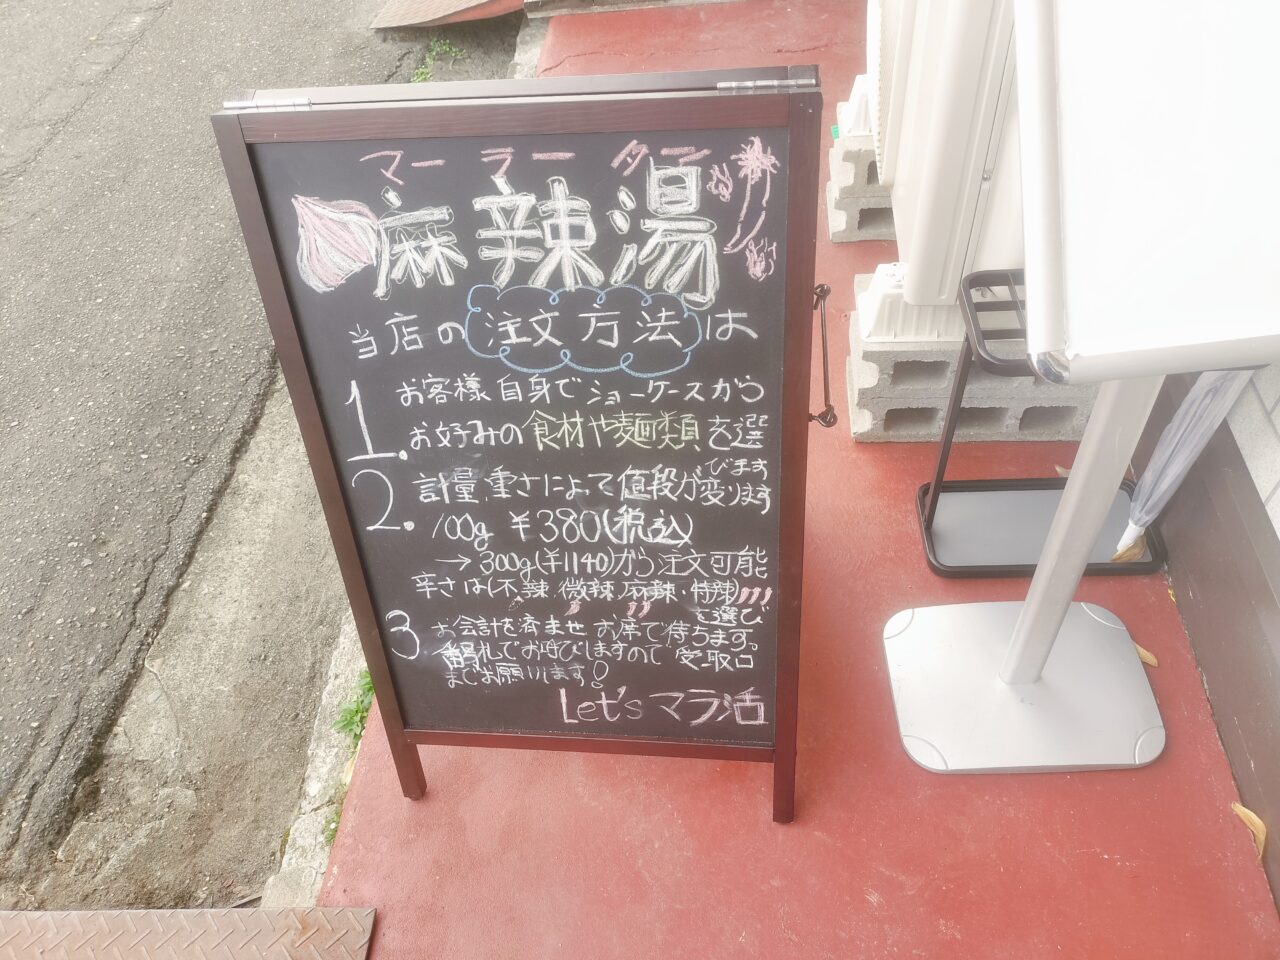 マーラータン
麻辣湯
当店の注文方法は
1. お客様自身でショーケースから
お好みの食材や麺類を選
びます
2. 計量、重さによって値段が変ります
100g ¥380(税込)
→300g(¥1140)から注文可能
辛さは(不辣.微辣.麻辣・特辣)
を選び
3 お会計を済ませ お席で待ちます。
番号札でお呼びしますので 受取口
までお願いします!
Let's マラ活